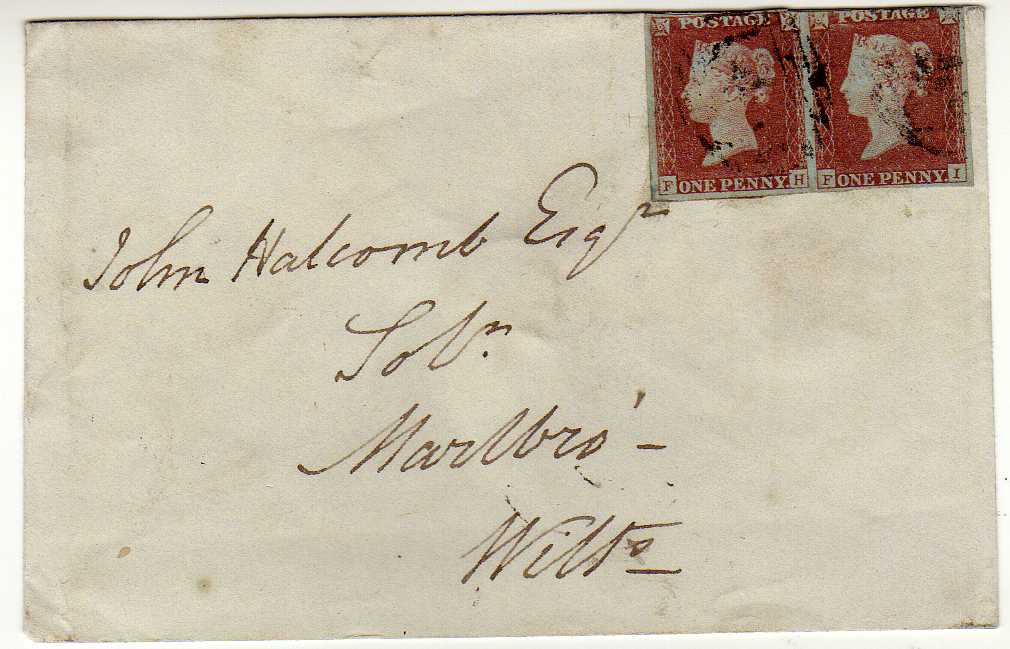 POSTAGE POSTAGE
F ONE PENNY. H F ONE PENNY I
John Halcomb Esqr
Solr
Marlbro' -
Wilts